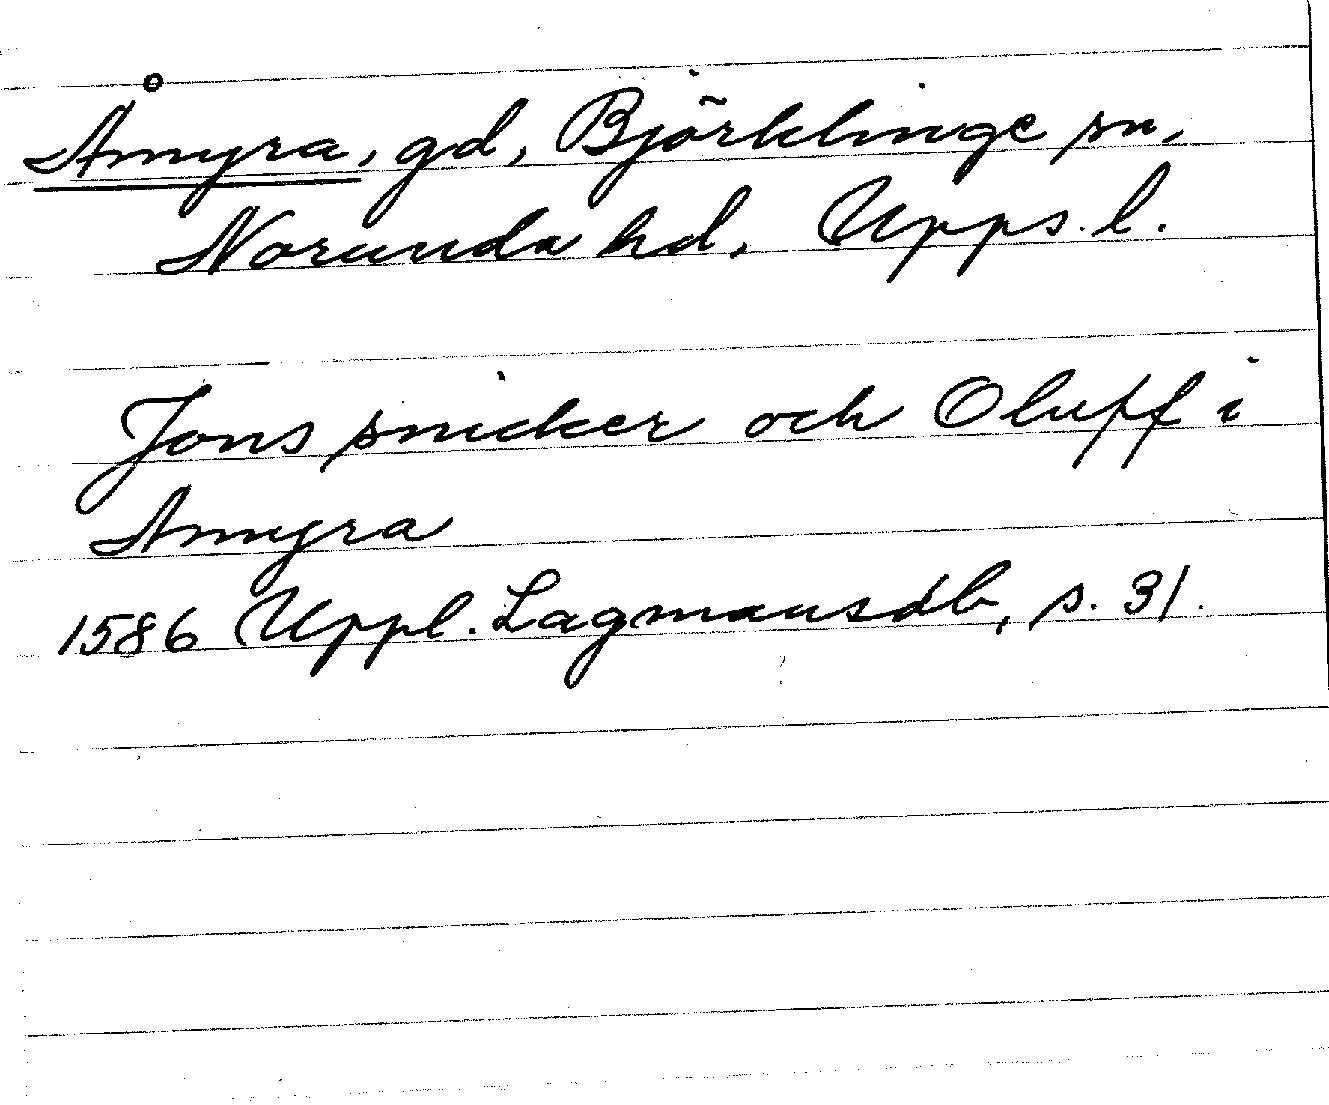 Åmyra, gd, Björklinge sn,
Norunda hd, Upps. l.
Jons snicker och Oluff i
Amyra
1586 Uppl. Lagmansdb, s. 31.